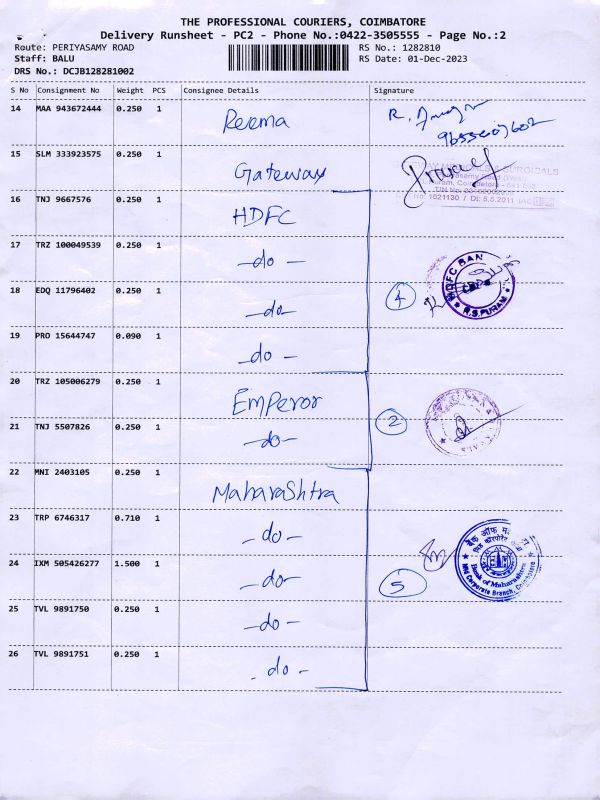 THE PROFESSIONAL COURIERS, COIMBATORE
Delivery Runsheet - PC2 - Phone No.:0422-3505555 - Page No.:2
Route: PERIYASAMY ROAD RS No.: 1282810
Staff: BALU RS Date: 01-Dec-2023
DRS No.: DCJB128281002
S No Consignment No Weight PCS Consignee Details Signature
14 MAA 943672444 0.250 1 Reema R.
15 SLM 333923575 0.250 1 Gateway
16 TNJ 9667576 0.250 1 HDFC
No: 1021130 / Dt: 5.5.2011
17 TRZ 100049539 0.250 1 -do-
18 EDQ 11796402 0.250 1 -do- 4 HDFC BAN R.S.PURAM
19 PRO 15644747 0.090 1 -do-
20 TRZ 105006279 0.250 1 Emperor
21 TNJ 5507826 0.250 1 -do- 2
22 MNI 2403105 0.250 1 Maharashtra
23 TRP 6746317 0.710 1 -do- बैंक ऑफ
24 IXM 505426277 1.500 1 -do- 5 Bank of Maharashtra
Corporate Branch,
25 TVL 9891750 0.250 1 -do-
26 TVL 9891751 0.250 1 -do-